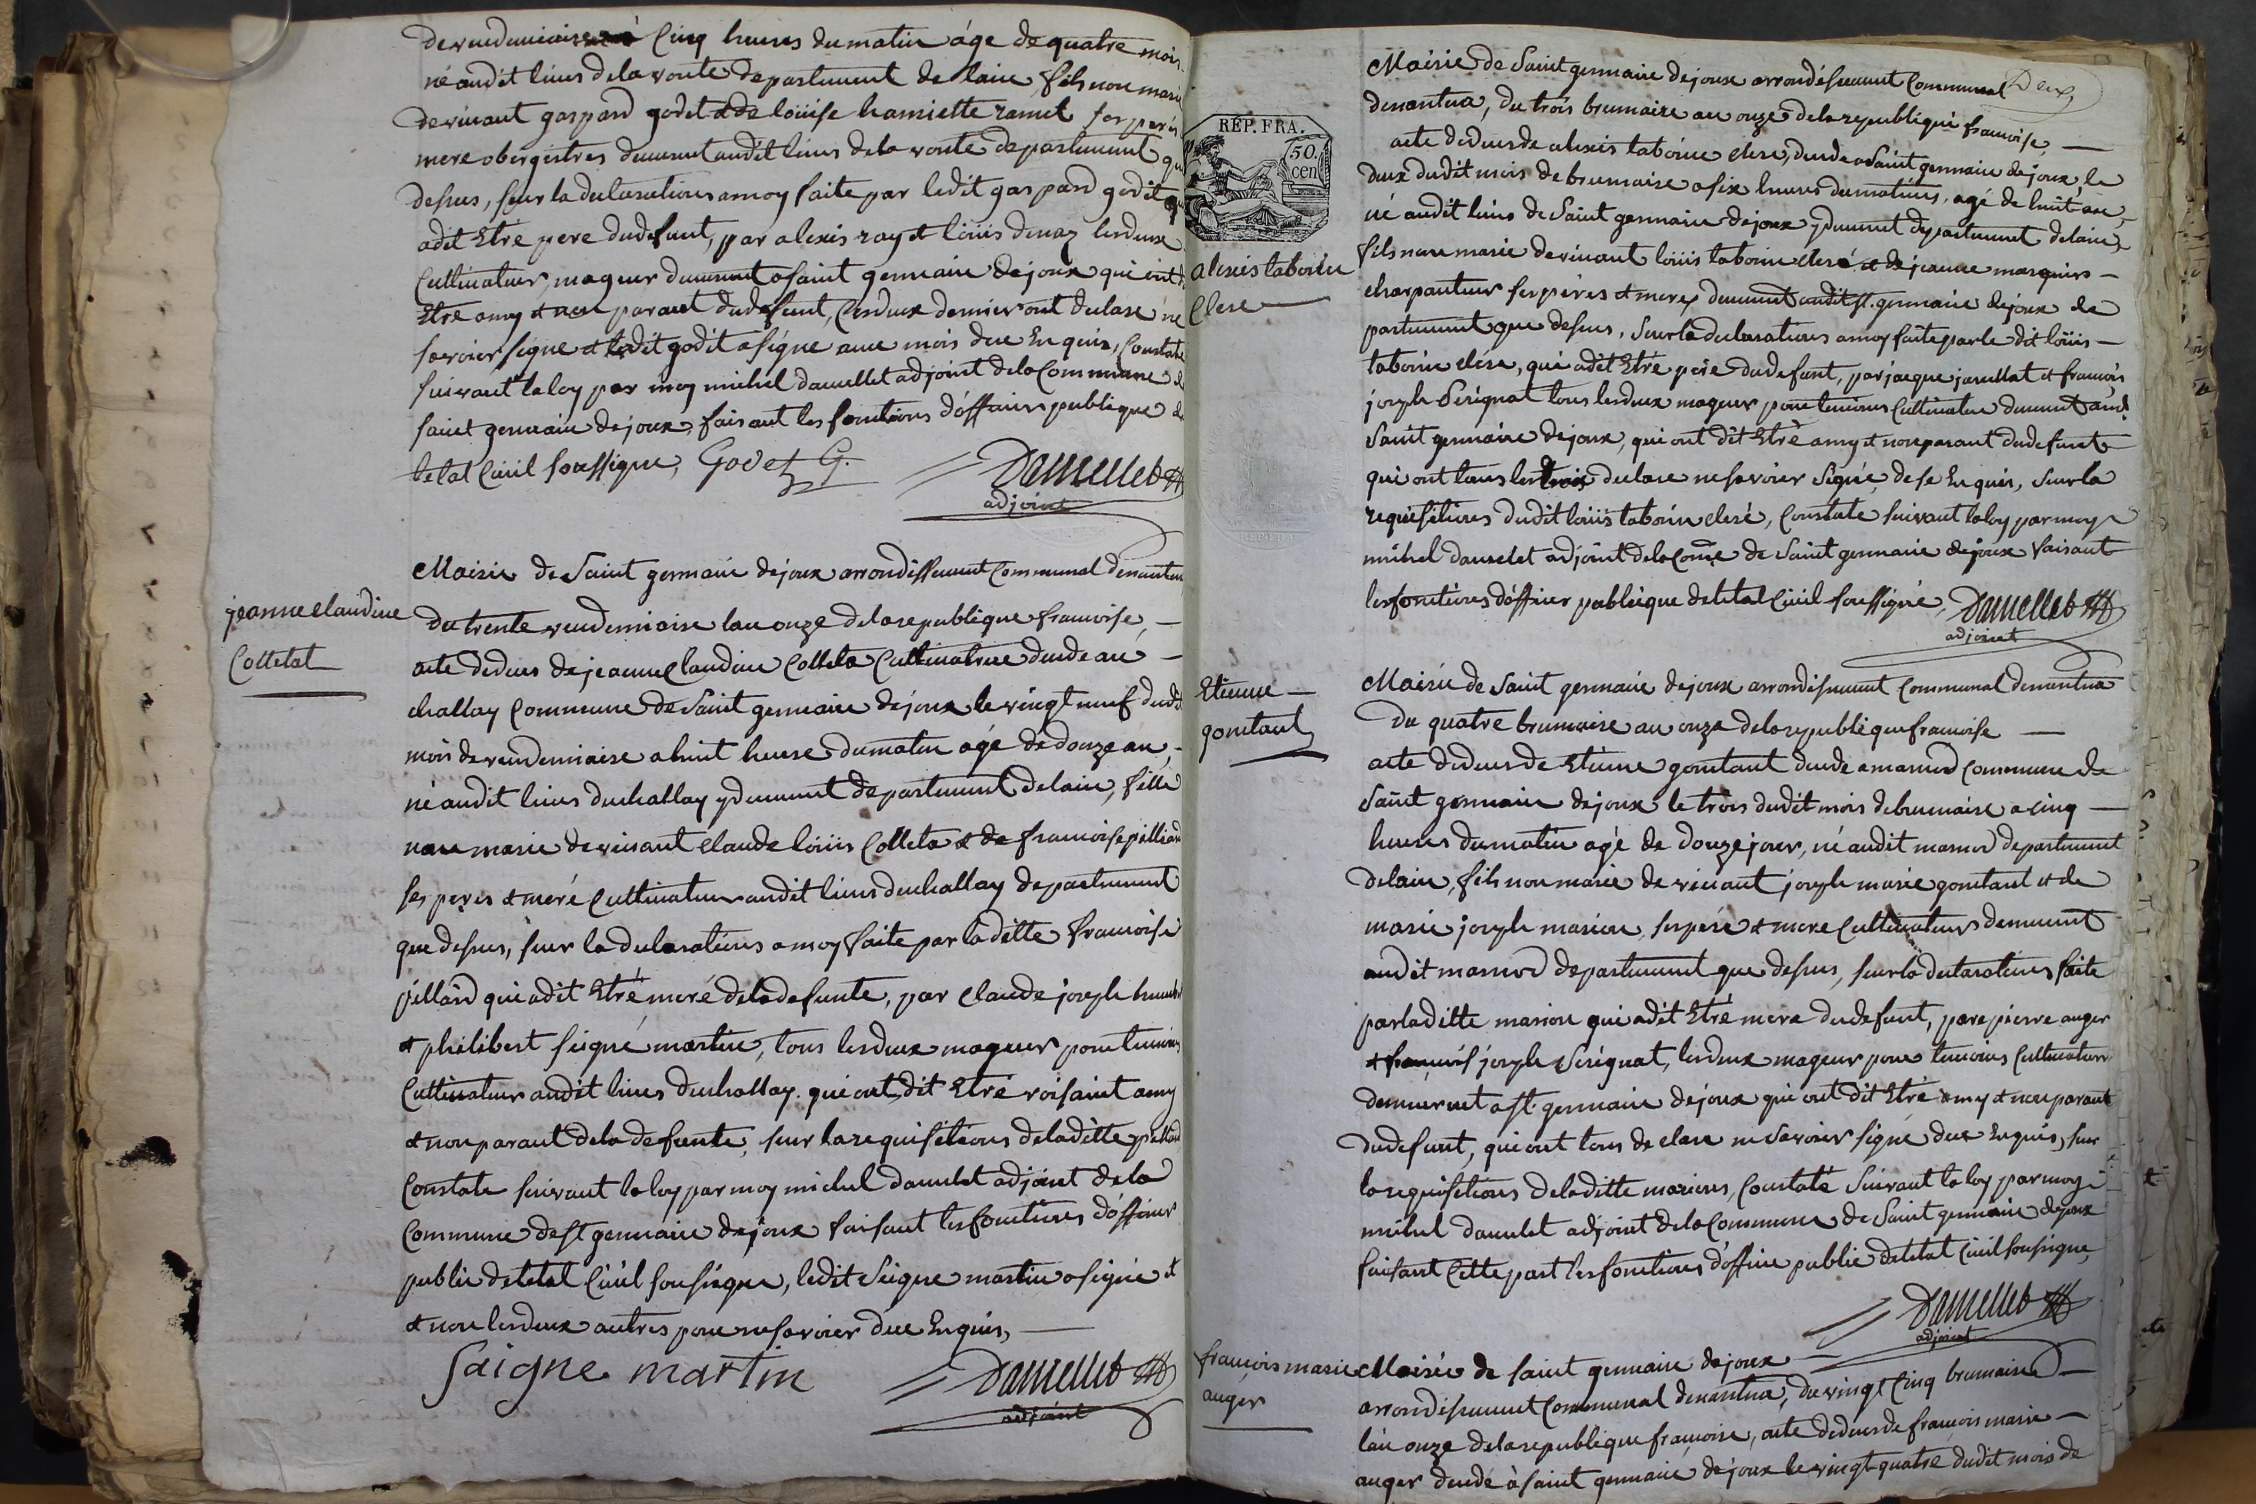 de vendemiaire à Cinq heures du matin âge de quatre mois
né audit lieus de la voute departement de laiu fils non marie
de vivant gaspard godet & de loüise hanriette ramet ses peres
mere obergistres demeurant audit lieus de la voute departement que
desus, sur la declarations a moy faite par ledit gaspard godit qui
adit Etre pere du defunt, par alexis ray et loüis denaz lesdeux
Cultivateur mageur demeurant a saint germain de joux qui ont dit
Etre amy et non parant du defunt, lesdeux dernier ont declare ne
savoier signe et ledit godit a signe avec mois due Enquis, Constate
suivant la loy par moy michel damellet adjoint de la Commune de
saint germain de joux, faisant les fonctions d'officier publique de
letat Civil soussigne, Godet G.
Damellet
adjoint
Mairie de Saint germain de joux arrondissement Communal denantua
jeanne claudine
Colletat
du trente vendemiaire lan onze de la republique francoise, —
acte dedeces de jeanne Claudine Colleta Cultivatrice decede au —
challay Commune de Saint germain de joux le vingt neuf dudit
mois de vendemiaire a huit heures du matin agé de douze an, —
né audit lieus duchallay y demeurant departement delain, fille
non marie de vivant claude loüis Colleta & de francoise pilliard
ses peres et meré Cultivateur audit lieus duchallay departement
que desus, sur la declarations a moy faite par la ditte francoise
pillard qui adit Etré meré de la defunte, par Claude joseph humbert
et philibert seigné martin, tous lesdeux mageur pour temoins
Cultivateur audit lieus duchallay. qui ont dit Etré voisaint amy
et non parant de la defunte, sur la requisitions de la ditte pillard
Constate suivant la loy par moy michel damelet adjoint de la
Commune de st germain de joux faisant les fonctions d'officier
public de letat Civil sousigne, ledit Seigne martin a signé et
et non lesdeux autres pour ne savoier due Enquis, —
Saigne martin
Damellet
adjoint
RÉP. FRA.
50.
cen
Deux
Mairie de Saint germain de joux arrondissement Communal
denantua, du trois brumaire an onze de la republique francoise, —
acte dedeces de alexis taboin clerc, decede a Saint germain de joux le
deux dudit mois de brumaire a six heures du matin, agé de huit an, —
né audit lieus de Saint germain de joux y demeurant departement delain,
alexis taboin
Clerc
fils non marie de vivant loüis taboin cleré et de jeanne marquis —
charpanteur ses peres et meres demeurant audit st. germain de joux de
partement que desus, sur la declarations a moy faite par le dit loüis —
taboin clére, qui adit Etré pére du defunt, par jacque jamellat et francois
joseph Sérignat tous lesdeux mageur pour temoins Cultivateur demeurant audit
Saint germain de joux, qui ont dit Etré amy et non parant du defunt
qui ont tous les trois declare ne savoier Signé, de se Enquis, sur la
requisitions dudit loüis taboin cleré, Constate suivant la loy par moy
michel damelet adjoint de la Come de Saint germain de joux faisant
les fonctions d'officier publique de letat Civil soussigné, Damellet
adjoint
Etienne —
gonetant
Mairie de Saint germain de joux arrondissement Communal denantua
du quatre brumaire an onze de la republique francoise —
acte dedeces de Etiene gonetant decede a marnod Commune de
Saint germain de joux le trois dudit mois de brumaire a cinq —
heures du matin agé de douze jour, né audit marnod departement
delain, fils non marie de vivant joseph marie gonetant et de
marie joseph marion, ses peré et mere Cultivateurs demeurant
audit marnod departement que desus, sur la declarations faite
par la ditte marion qui adit Etré mere du defunt, par pierre auger
et francois joseph Sérignat, lesdeux mageur pour temoins Cultivateurs
demeurant a st. germain de joux qui ont dit Etré amy et non parant
du defunt, qui ont tous declare ne Savoier signé due Enquis, sur
la requisitions de la ditte marions, Constaté Suivant la loy par moy
michel damelet adjoint de la Commune de Saint germain de joux
faisant Cette part les fonctions d'officier public de letat Civil sousigne,
Damellet
adjoint
francois marie
auger
Mairie de Saint germain de joux —
arrondissement Communal denantua, du vingt Cinq brumaire —
lan onze de la republique francoise, acte dedeces de francois marie —
auger decedé à saint germain de joux le vingt quatre dudit mois de